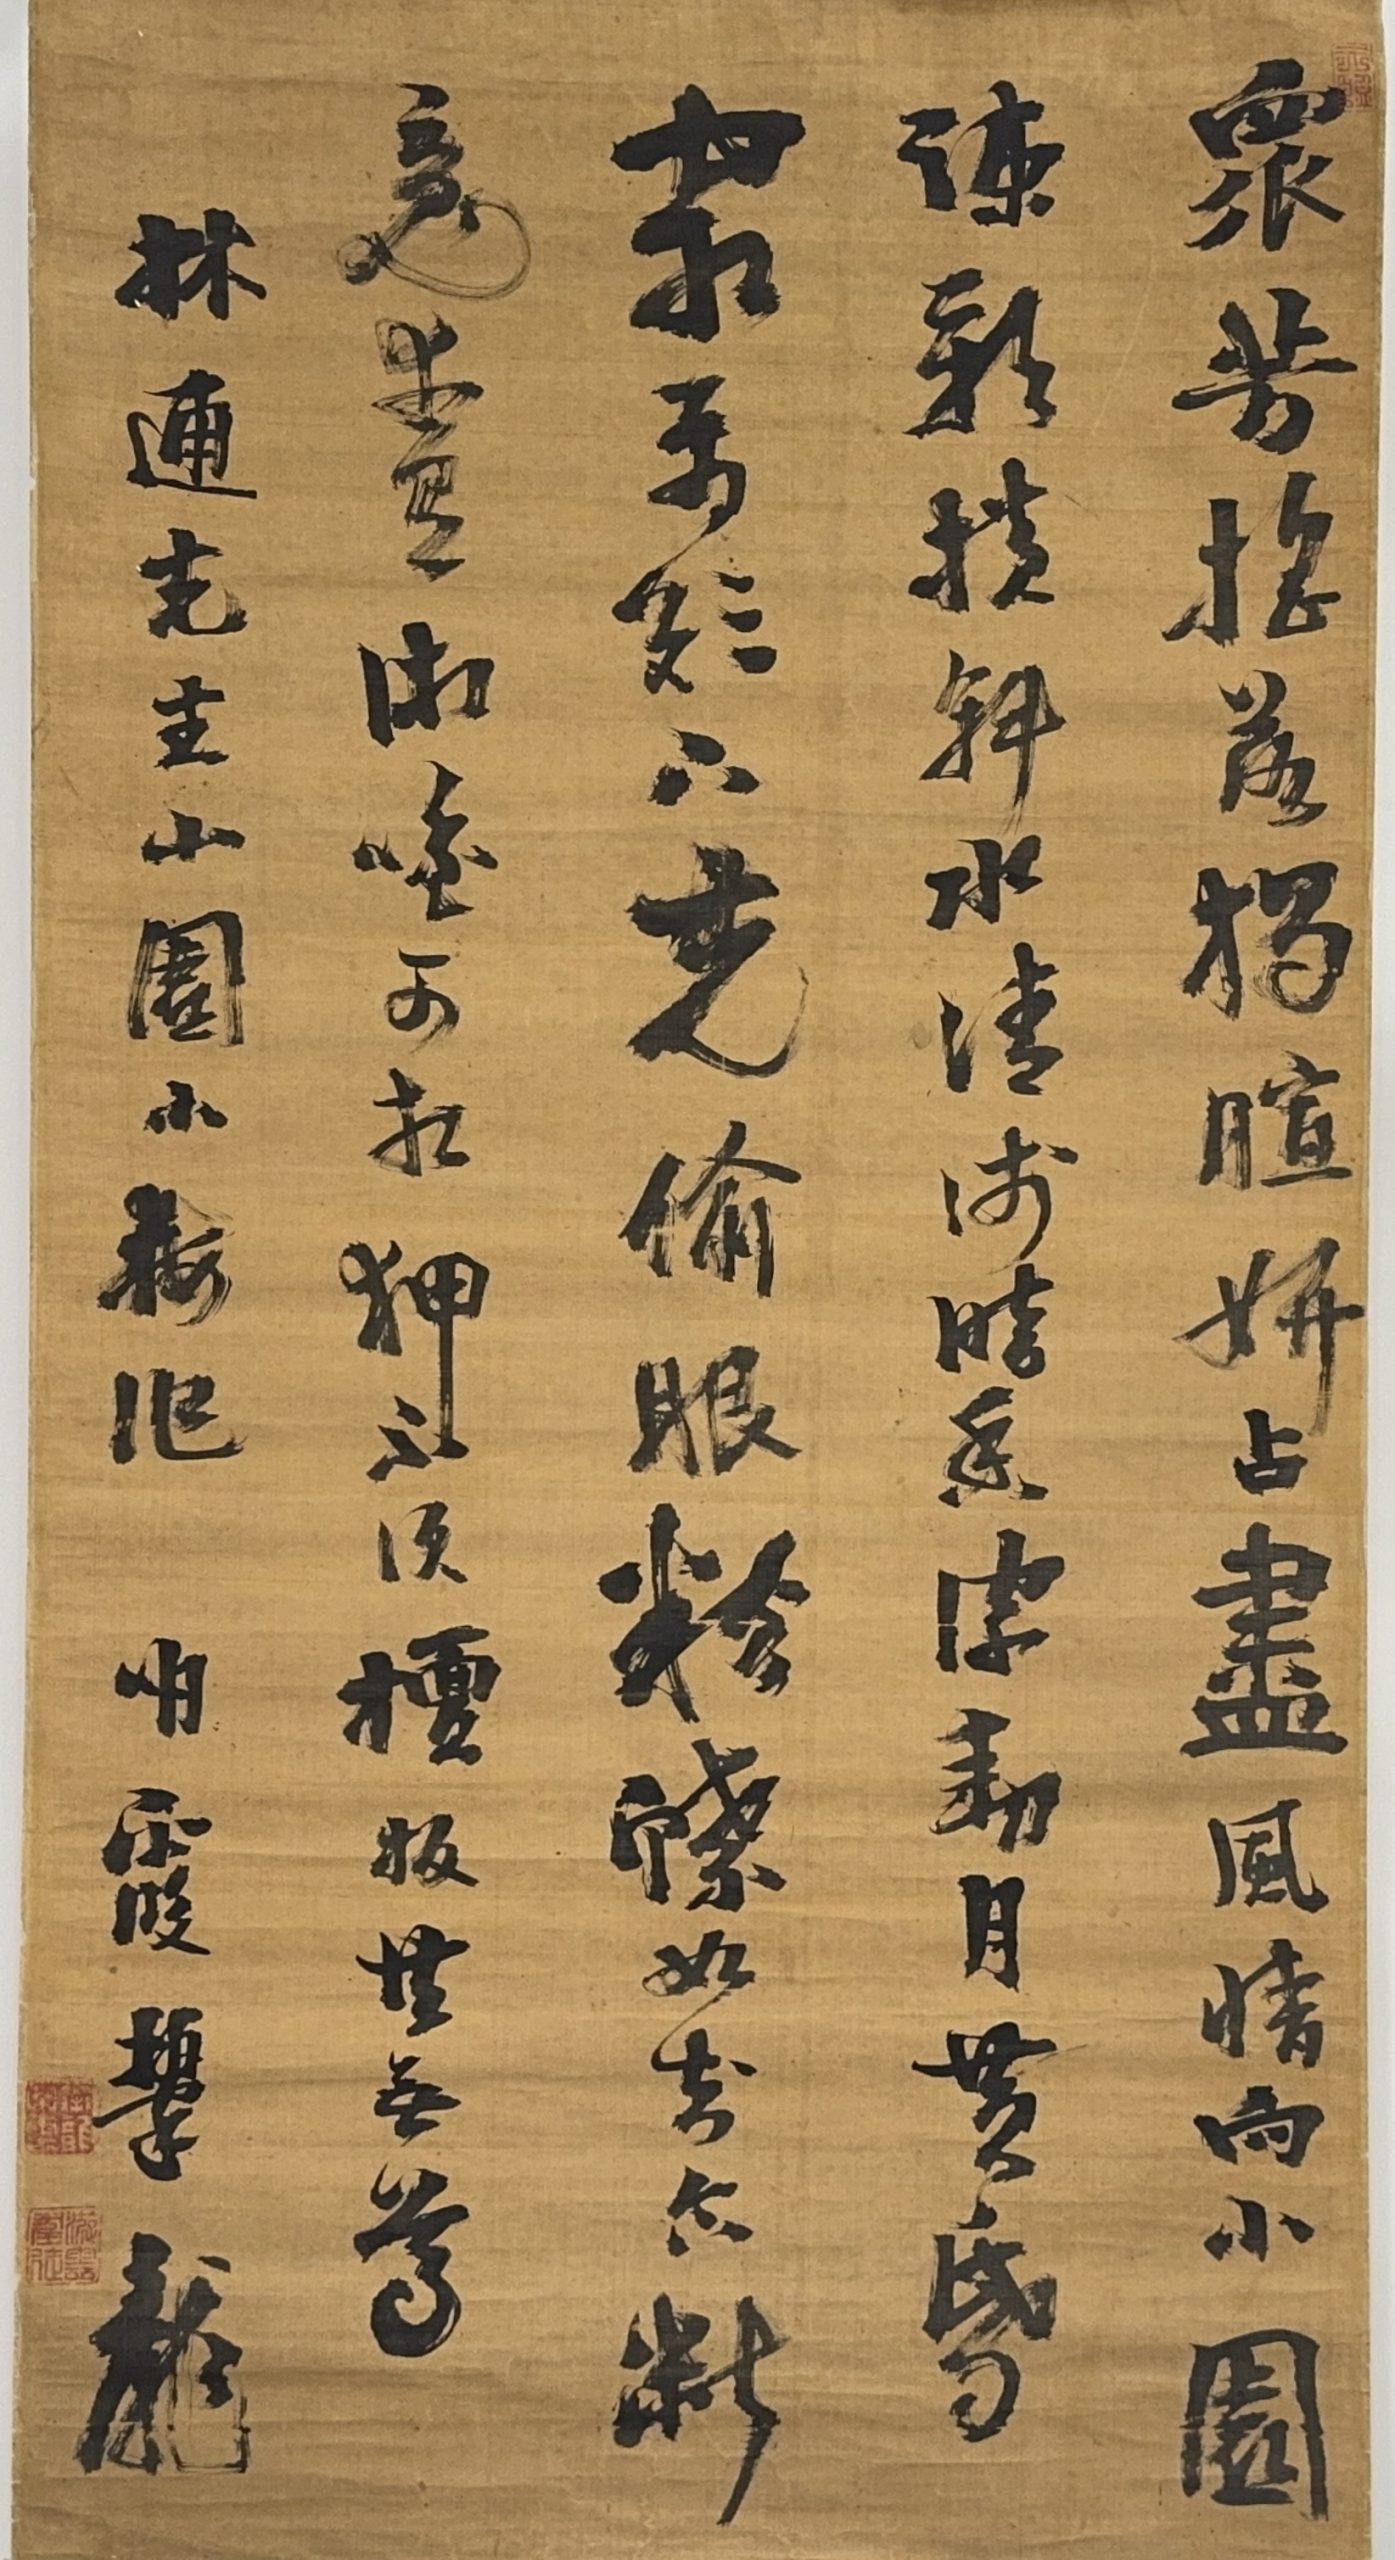 衆芳搖落獨暄妍占盡風情向小園
疎影橫斜水清淺暗香浮動月黃昏
霜禽欲下先偷眼粉蝶如知合斷
魂幸有微吟可相狎不須檀板共金尊
林逋先生山園小梅 明霞龍